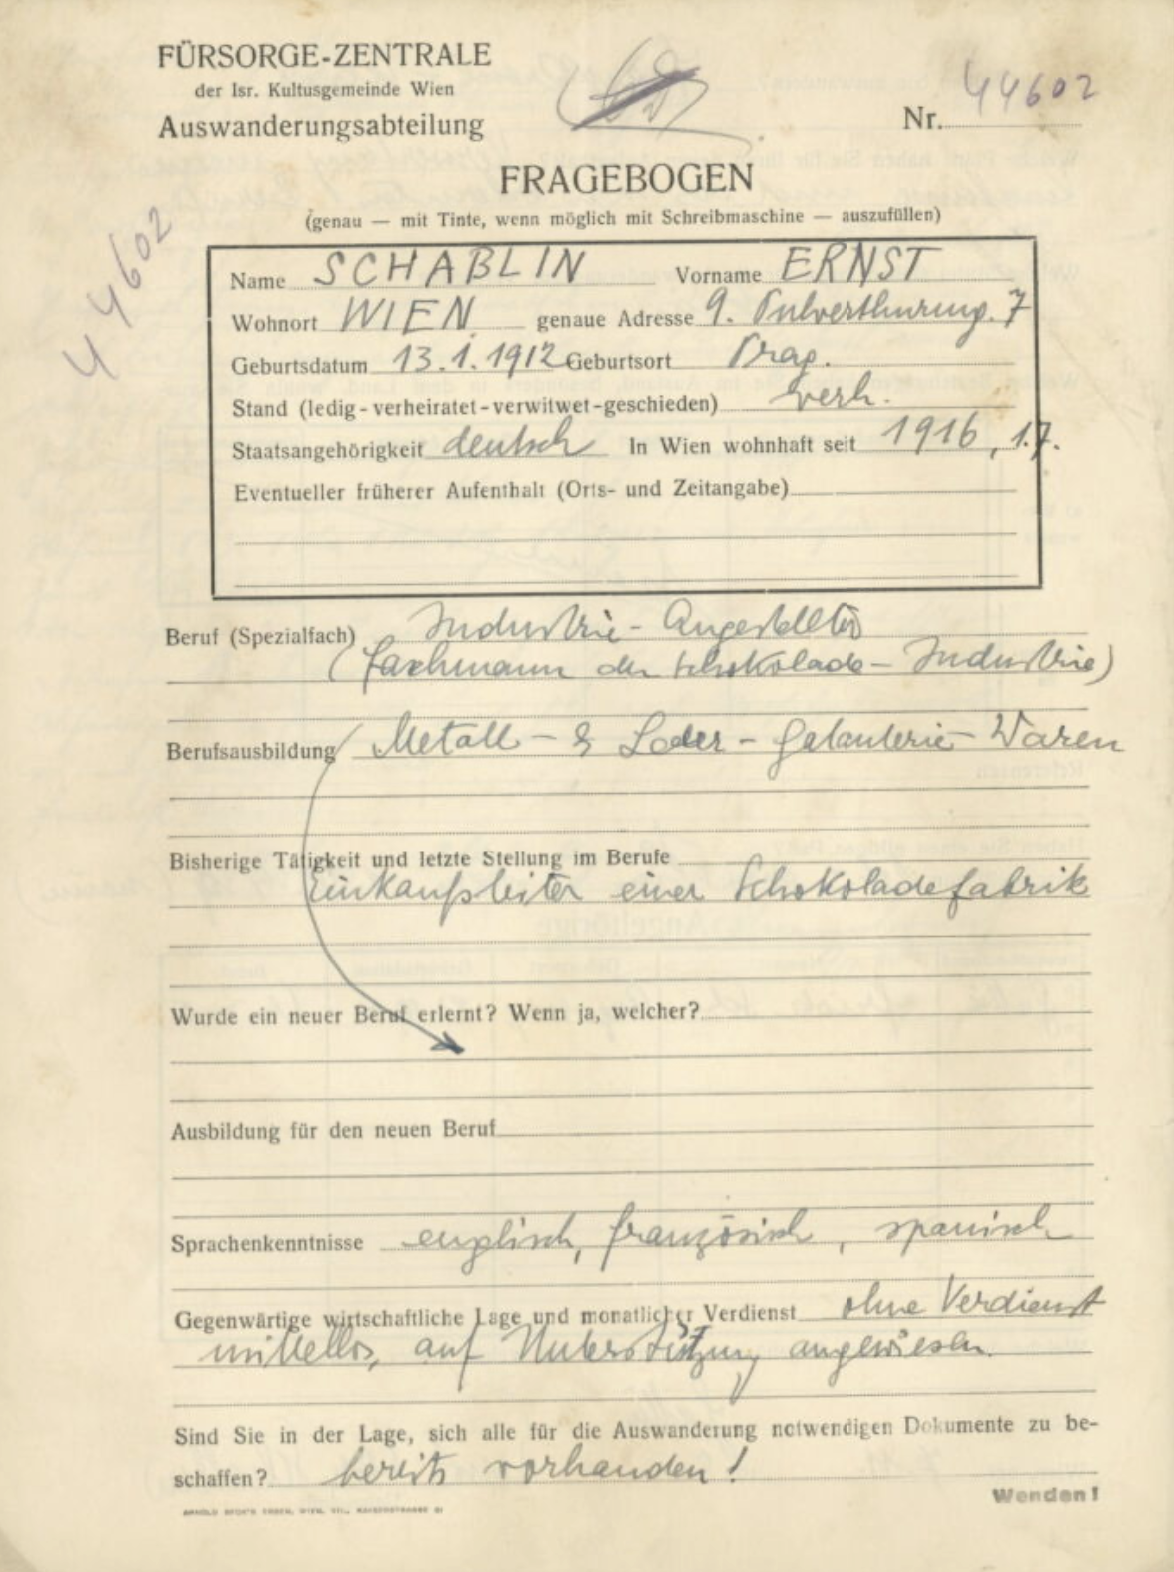 FÜRSORGE-ZENTRALE
der Isr. Kultusgemeinde Wien
Auswanderungsabteilung
Nr. 44602
44602
FRAGEBOGEN
(genau — mit Tinte, wenn möglich mit Schreibmaschine — auszufüllen)
Name SCHABLIN Vorname ERNST
Wohnort WIEN genaue Adresse 9. Pulverthurmg. 7
Geburtsdatum 13.1.1912 Geburtsort Prag.
Stand (ledig-verheiratet-verwitwet-geschieden) verh.
Staatsangehörigkeit deutsch In Wien wohnhaft seit 1916, 1.7.
Eventueller früherer Aufenthalt (Orts- und Zeitangabe)
Beruf (Spezialfach) Industrie-Angestellter
(Fachmann der Schokolade-Industrie)
Berufsausbildung Metall- & Leder-Galanterie-Waren
Bisherige Tätigkeit und letzte Stellung im Berufe
Einkaufsleiter einer Schokoladefabrik
Wurde ein neuer Beruf erlernt? Wenn ja, welcher?
Ausbildung für den neuen Beruf
Sprachenkenntnisse englisch, französisch, spanisch
Gegenwärtige wirtschaftliche Lage und monatlicher Verdienst ohne Verdienst
mittellos, auf Unterstützung angewiesen.
Sind Sie in der Lage, sich alle für die Auswanderung notwendigen Dokumente zu be-
schaffen? bereits vorhanden!
Wenden!